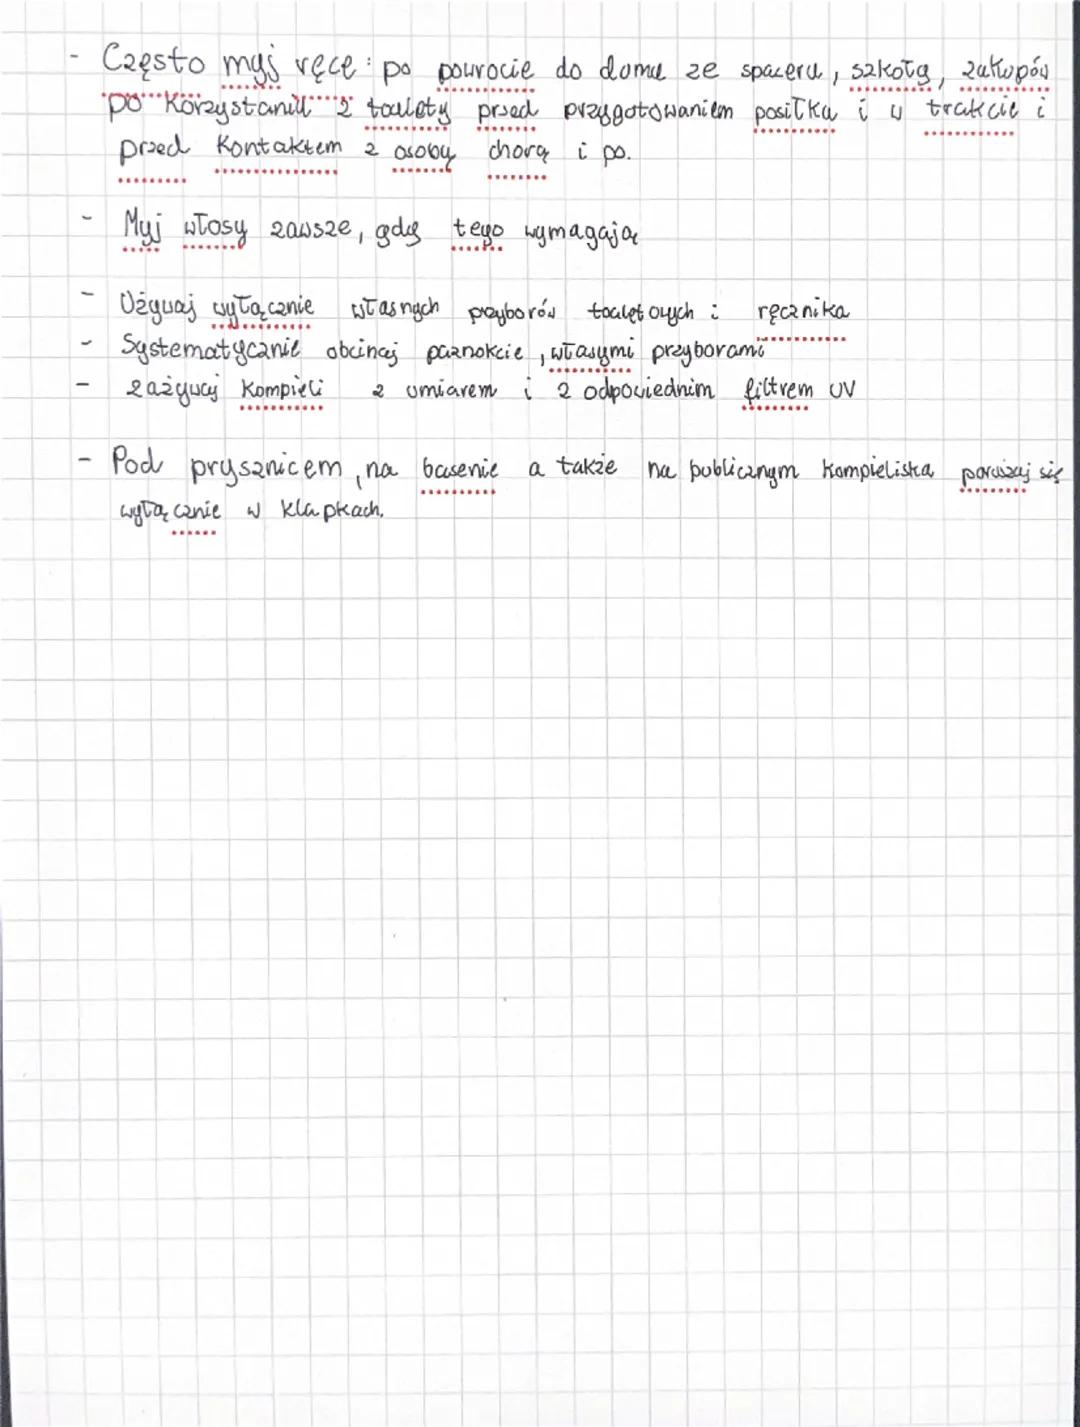 - Często myj ręce: po powrocie do domu ze spaceru, szkoły, zakupów
po korzystaniu z toalety przed przygotowaniem posiłku i w trakcie i
przed kontaktem z osoby chorą i po.
- Myj włosy zawsze, gdy tego wymagają
- Używaj wyłącznie własnych przyborów toaletowych i ręcznika
- Systematycznie obcinaj paznokcie, własymi przyborami
- zażywaj kompieli z umiarem i z odpowiednim filtrem UV
- Pod prysznicem, na basenie a także na publicznym kompieliska poruszaj się
wyłącznie w klapkach.